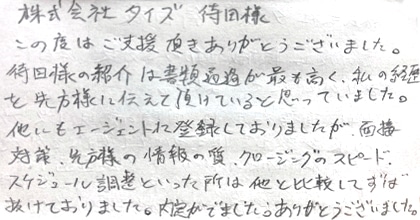 株式会社 タイズ 待田様
この度はご支援頂きありがとうございました。
待田様の紹介は書類通過が最も高く、私の経歴
を先方様に伝えて頂けていると思っていました。
他にもエージェントに登録しておりましたが、面接
対策、先方様の情報の質、クロージングのスピード、
スケジュール調整といった所は他と比較してずば
抜けておりました。内定がでました。ありがとうございました。